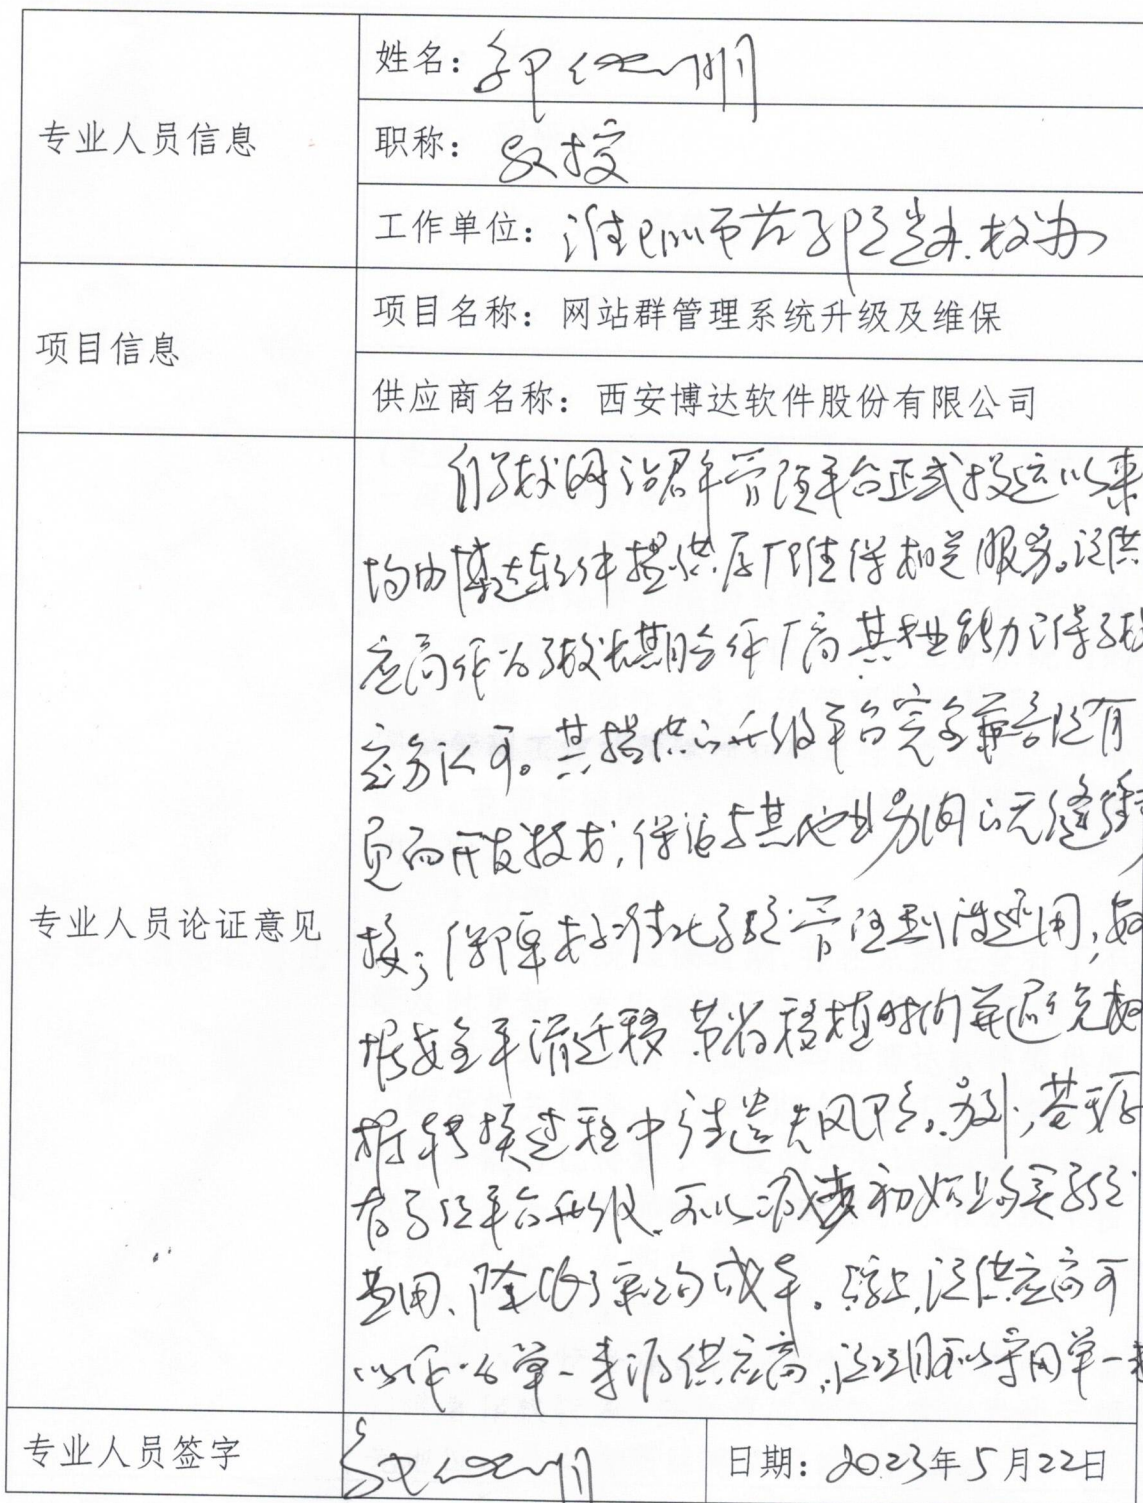 专业人员信息
姓名：
职称：教授
工作单位：淮
项目信息
项目名称：网站群管理系统升级及维保
供应商名称：西安博达软件股份有限公司
专业人员论证意见
自学校网站群管理平台正式投运以来
均由博达软件提供原厂维保相关服务。该供
应商作为学校长期合作厂商其专业能力得学校
充分认可。其提供的升级平台完全兼容既有
页面开发技术，保证与其他业务间的无缝
接；保障系统管理 使用，数
据安全平滑迁移 节省移植时间并避免数
据转换过程中 遗失风险。另外，若
有 平台升级 可以减少初始购买系统
费用、降低了采购成本。综上，该供应商可
以作为单一来源供应商，该项目可以采用单一来
专业人员签字
日期：2023年5月22日